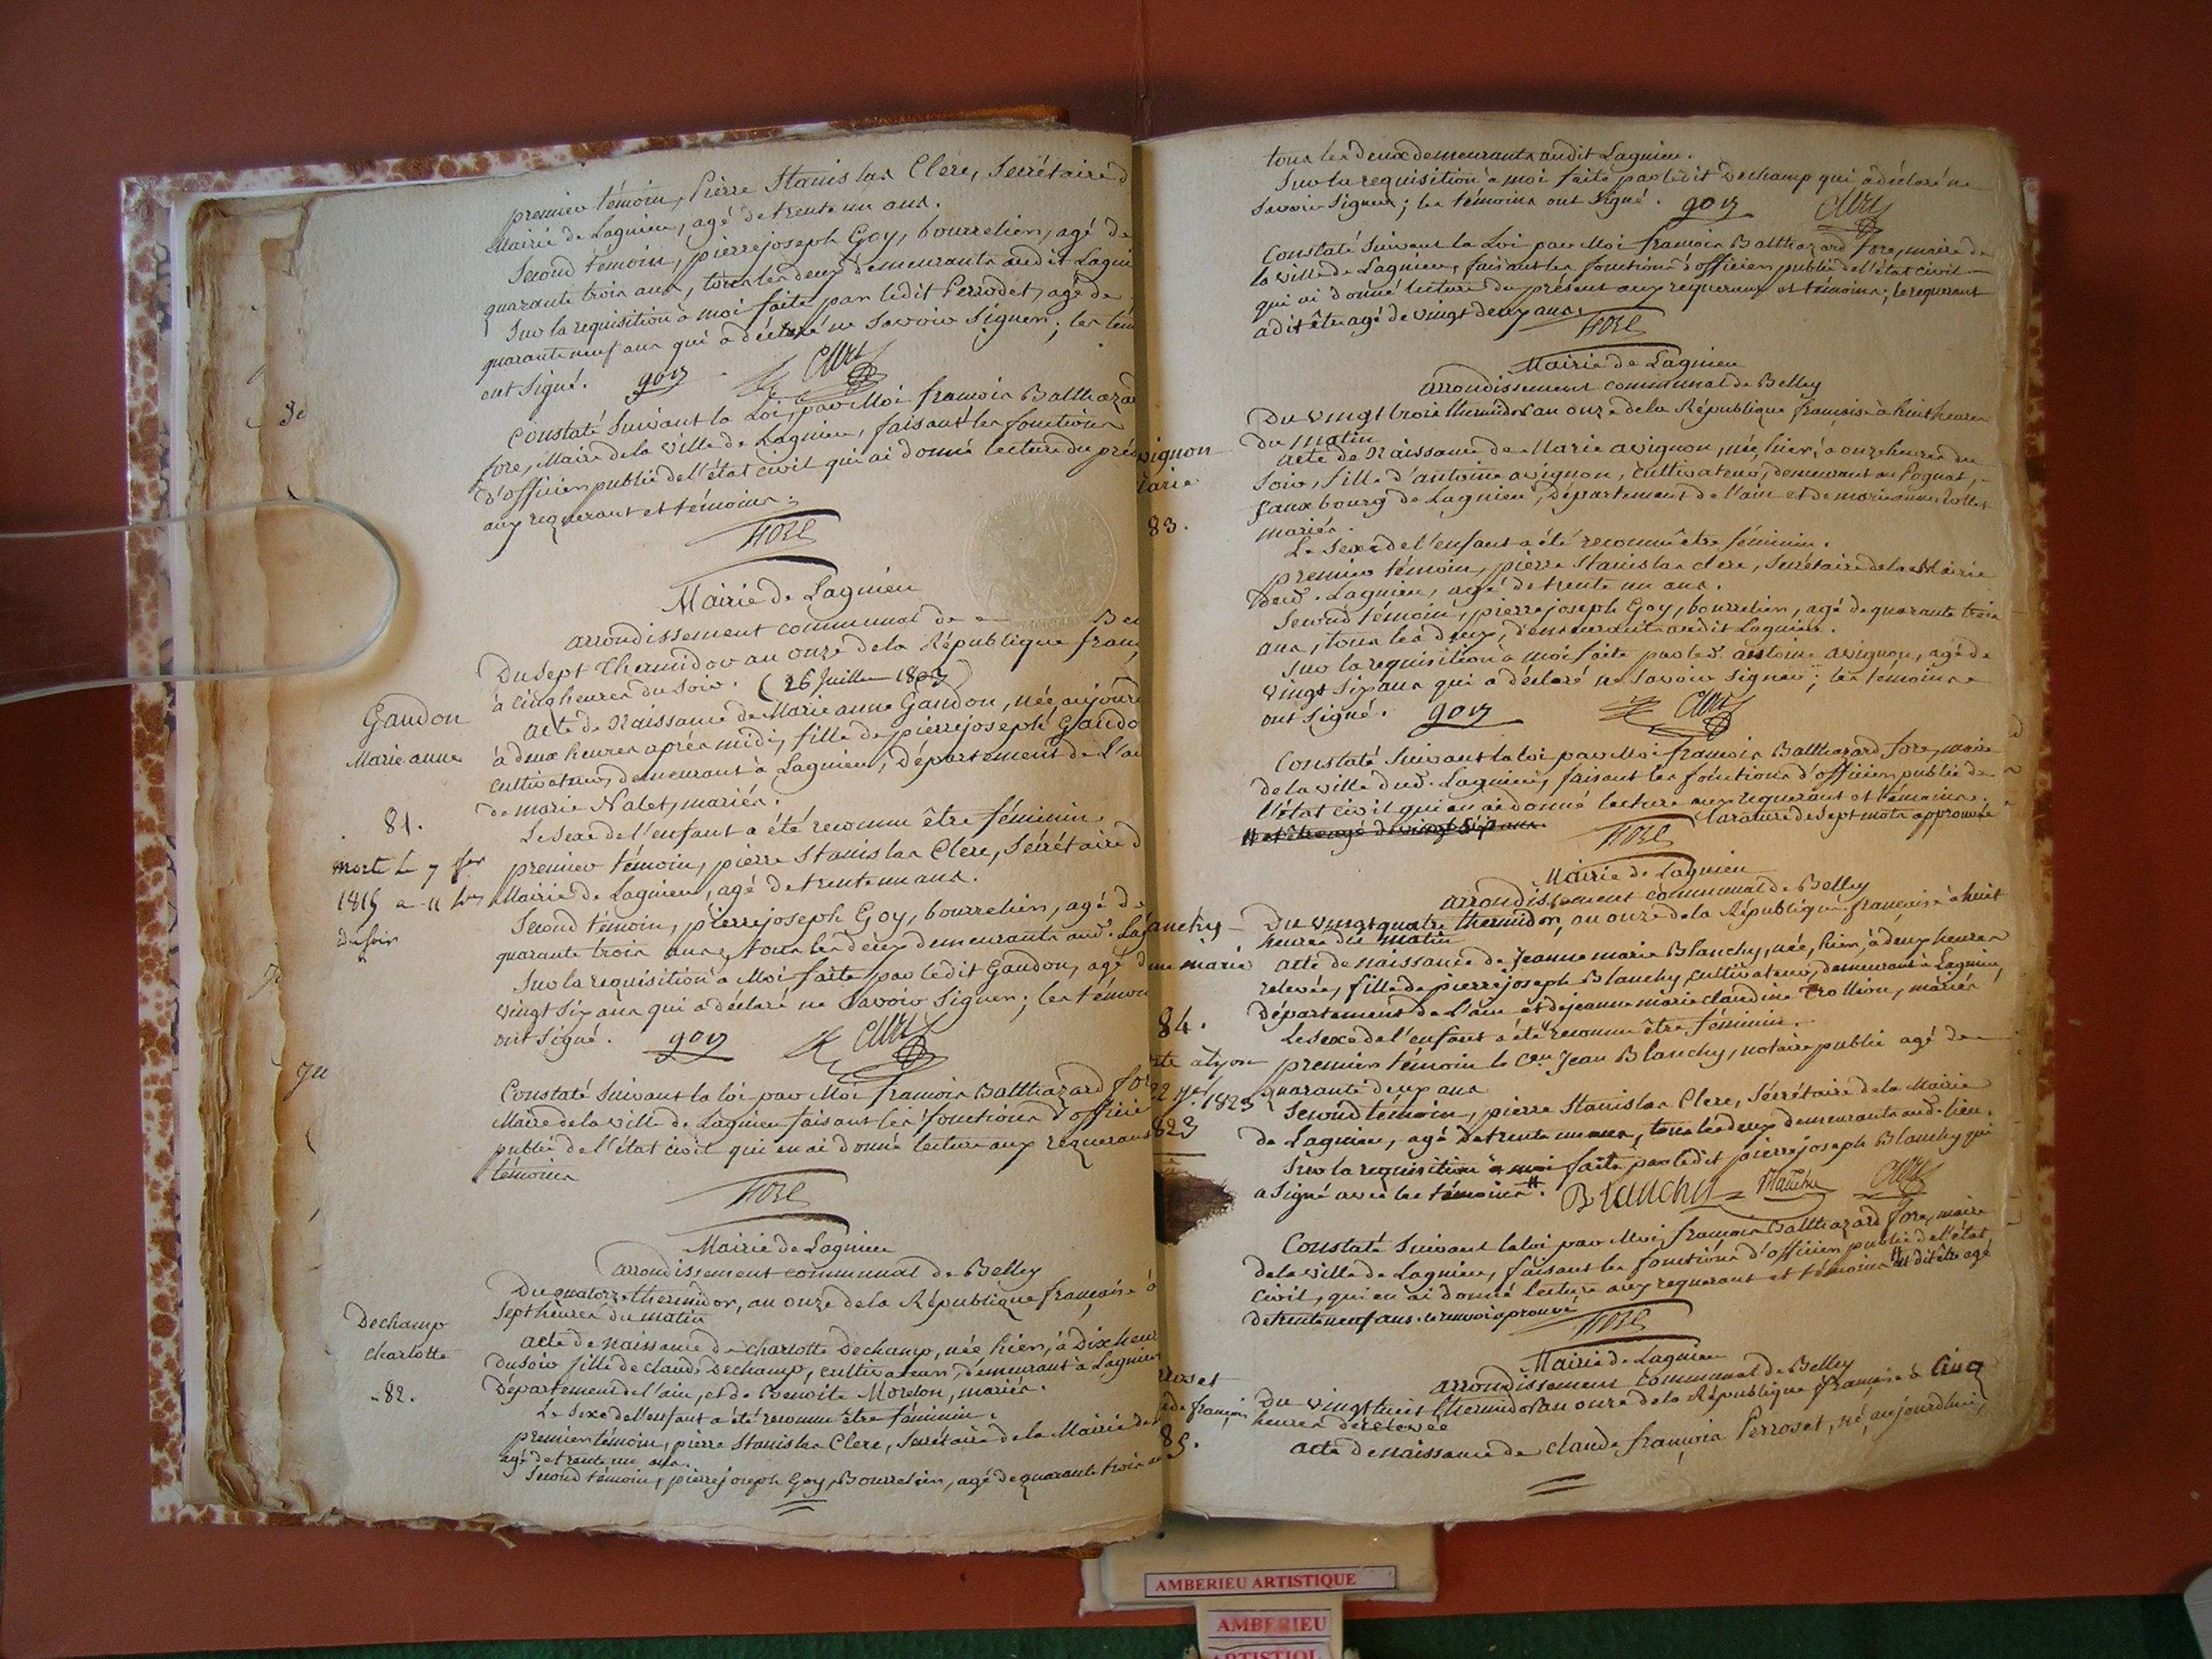 premier témoin, Pierre Stanislas Clerc, Secrétaire d
Mairie de Lagnieu, agé de trente un ans.
Second témoin, pierre joseph Goy, bourrelier, agé de
quarante trois ans, tous les deux demeurants audit Lagni
Sur la requisition à moi faite par ledit Perrodet, agé de
quarante neuf ans qui a déclaré ne Savoir Signer; les tém
ont Signé. goy Clerc
Constaté Suivant la Loi, par Moi françois Balthazar
fore, Maire de la Ville de Lagnieu, faisant les fonctions
d'officier public de l'état civil qui ai donné lecture du prés
aux requerant et témoins.
FORE
Mairie de Lagnieu
arrondissement communal de Bel
Du Sept Thermidor an onze de la République franç
à cinq heures du Soir. (26 Juillet 1803)
Gaudon
Marie anne
81.
morte le 7 fer
1815 a 11 hres
du soir
acte de Naissance de Marie anne Gaudon, née, aujourd
à deux heures après midi, fille de pierre joseph Gaudo
cultivateur, demeurant à Lagnieu, Département de l'ai
de marie Nalet, mariés.
Le Sexe de l'enfant a été reconnu être féminin
premier témoin, pierre Stanislas Clerc, Sécrétaire d
Mairie de Lagnieu, agé de trente un ans.
Second témoin, pierre joseph Goy, bourrelier, agé de
quarante trois ans, tous les deux demeurants aud. Lag
Sur la requisition à Moi faite par ledit Gaudon, agé d
vingt Six ans qui a déclaré ne Savoir Signer; les témoi
ont Signé. goy Clerc
Constaté Suivant la loi par Moi françois Balthazard for
Maire de la Ville de Lagnieu faisant les fonctions d'officie
public de l'état civil qui en ai donné lecture aux requerant
témoins
FORE
Mairie de Lagnieu
arrondissement communal de Belley
Du quatorze thermidor, an onze de la République française à
Sept heures du matin
Dechamp
charlotte
82.
acte de naissance de charlotte Dechamp, née hier, à Dix heur
du soir fille de claude Dechamp, cultivateur, demeurant à Lagnieu
Département de l'ain, et de Benoite Morelon, mariés.
Le Sexe de l'enfant a été reconnu être féminin.
premier témoin, pierre Stanislas Clerc, Secrétaire de la Mairie de
agé de trente un ans.
Second témoin, pierre joseph Goy, Bourrelier, agé de quarante trois an
tous les deux demeurants audit Lagnieu.
Sur la requisition à moi faite par ledit Dechamp qui a déclaré ne
Savoir Signer; les témoins ont Signé. goy Clerc
Constaté Suivant la Loi par Moi françois Balthazard fore, maire de
la ville de Lagnieu, faisant les fonctions d'officier public de l'état civil
qui ai donné lecture du présent aux requerant et témoins; le requerant
a dit être agé de vingt deux ans.
FORE
Mairie de Lagnieu
arrondissement communal de Belley
Du vingt trois thermidor an onze de la République française à huit heures
du matin
vignon
Marie
83.
acte de Naissance de Marie avignon, née, hier, à onze heures du
Soir, fille d'antoine avignon, cultivateur, demeurant au Pognat,
fauxbourg de Lagnieu, Département de l'ain et de marie anne
mariés.
Le Sexe de l'enfant a été reconnu être féminin.
premier témoin, pierre Stanislas clerc, Secrétaire de la Mairie
dud. Lagnieu, agé de trente un ans.
Second témoin, pierre joseph Goy, bourrelier, agé de quarante trois
ans, tous les deux, demeurants audit Lagnieu.
Sur la requisition à moi faite par led. antoine avignon, agé de
vingt Six ans qui a déclaré ne Savoir Signer; les témoins
ont Signé. goy Clerc
Constaté Suivant la loi par Moi françois Balthazard fore, maire
de la ville dud. Lagnieu, faisant les fonctions d'officier public de
l'état civil qui en ai donné lecture aux requerant et témoins.
et être agé de vingt Six ans. la rature de Sept mots approuvée
FORE
Mairie de Lagnieu
arrondissement communal de Belley
Du vingt quatre thermidor, an onze de la République française à huit
heures du matin
anchy
ne marie
84.
rte a Lyon
22 1823
823
acte de naissance de Jeanne marie Blanchy, née, hier, à deux heures
relevée, fille de pierre joseph Blanchy, cultivateur, demeurant à Lagnieu,
Département de l'ain et de jeanne marie claudine Trollion, mariés
Le Sexe de l'enfant a été reconnu être féminin.
premier témoin le Cen Jean Blanchy, notaire public agé de
quarante deux ans
Second témoin, pierre Stanislas Clerc, Sécrétaire de la Mairie
de Lagnieu, agé de trente un ans, tous les deux demeurants aud. lieu.
Sur la requisition à moi faite par ledit pierre joseph Blanchy qui
a Signé avec les témoins. Blanchy Blanchy Clerc
Constaté Suivant la loi par Moi, françois Balthazard fore, maire
de la ville de Lagnieu, faisant les fonctions d'officier public de l'état
civil, qui en ai donné lecture aux requerant et témoins et dit être agé
de trente neuf ans. le renvoi approuvé
FORE
Mairie de Lagnieu
arrondissement communal de Belley
Du vingt huit thermidor an onze de la République française à Cinq
heures de relevée
rroset
de françois
85.
acte de naissance de claude françois Perroset, né, aujourdhui,
AMBERIEU ARTISTIQUE
AMBERIEU
ARTISTIQU